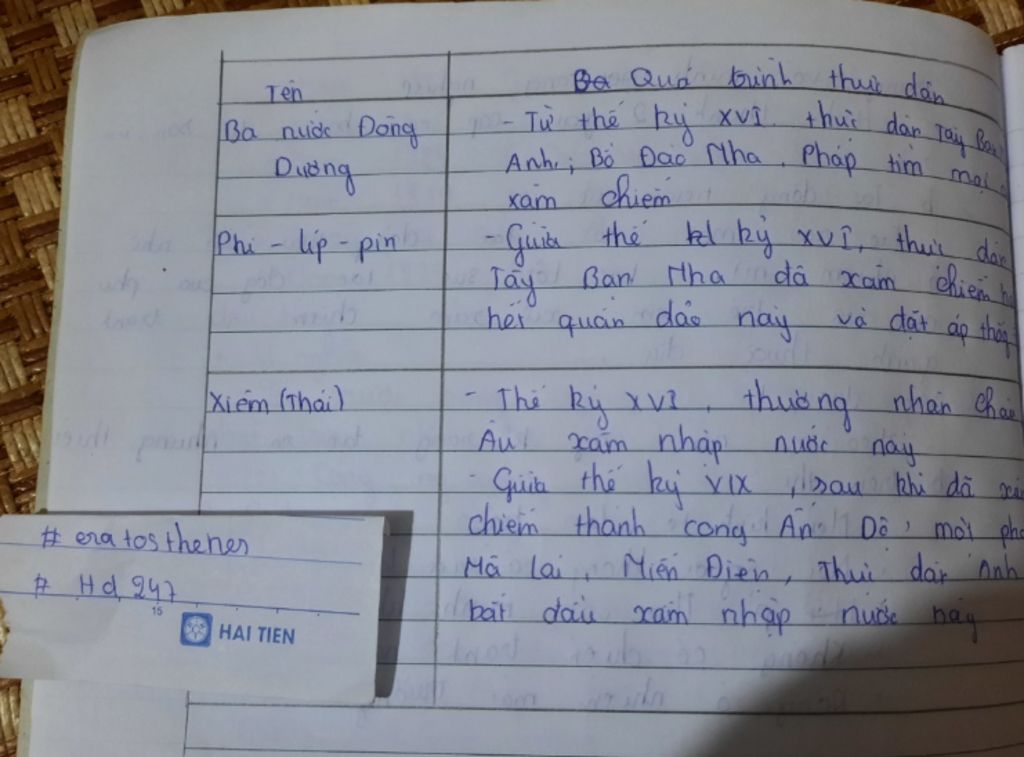 Tên
Quá trình thực dân
Ba nước Đông
Dương
- Từ thế kỷ XVI, thực dân Tây Ban
Anh, Bồ Đào Nha, Pháp tìm mọi
xâm chiếm
Phi - lip - pin
- Giữa thế kỷ XVI, thực dân
Tây Ban Nha đã xâm chiếm
hết quần đảo này và đặt áp thống
Xiêm (Thái)
- Thế kỷ XVI, thương nhân Châu
Âu xâm nhập nước này
- Giữa thế kỷ VIX, sau khi đã
chiếm thành công Ấn Độ, một
Mã lai, Miến Điện, Thực dân Anh
bắt đầu xâm nhập nước này
# eratosthenes
# Hd 247
15
HAI TIEN